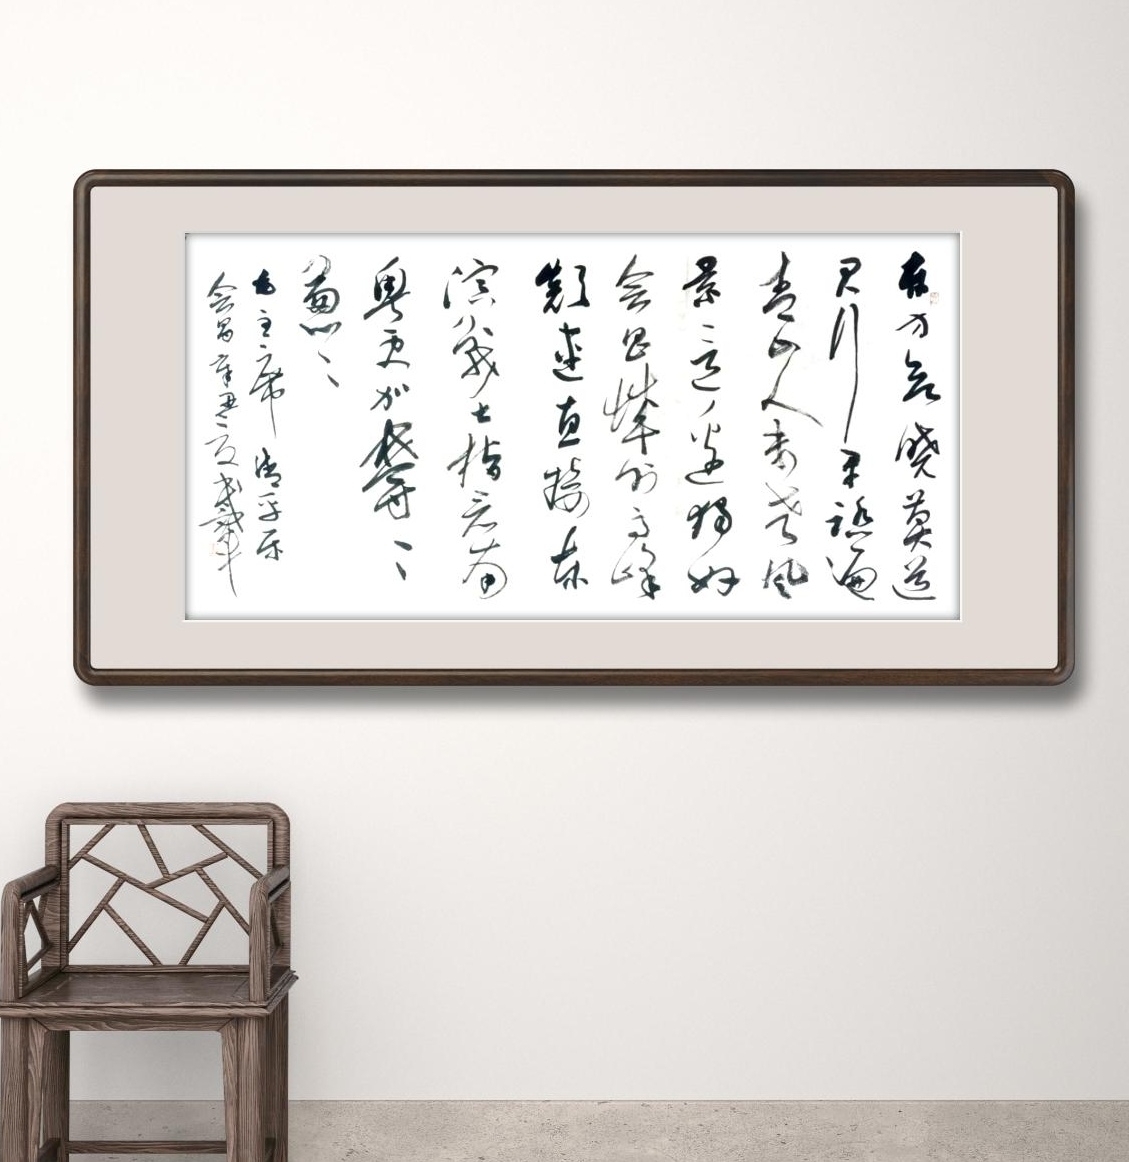 东方欲晓莫道
君行早踏遍
青山人未老风
景这边独好
会昌城外高峰
颠连直接东
溟战士指看南
粤更加郁郁
葱葱
毛主席 清平乐
会昌辛丑之夏